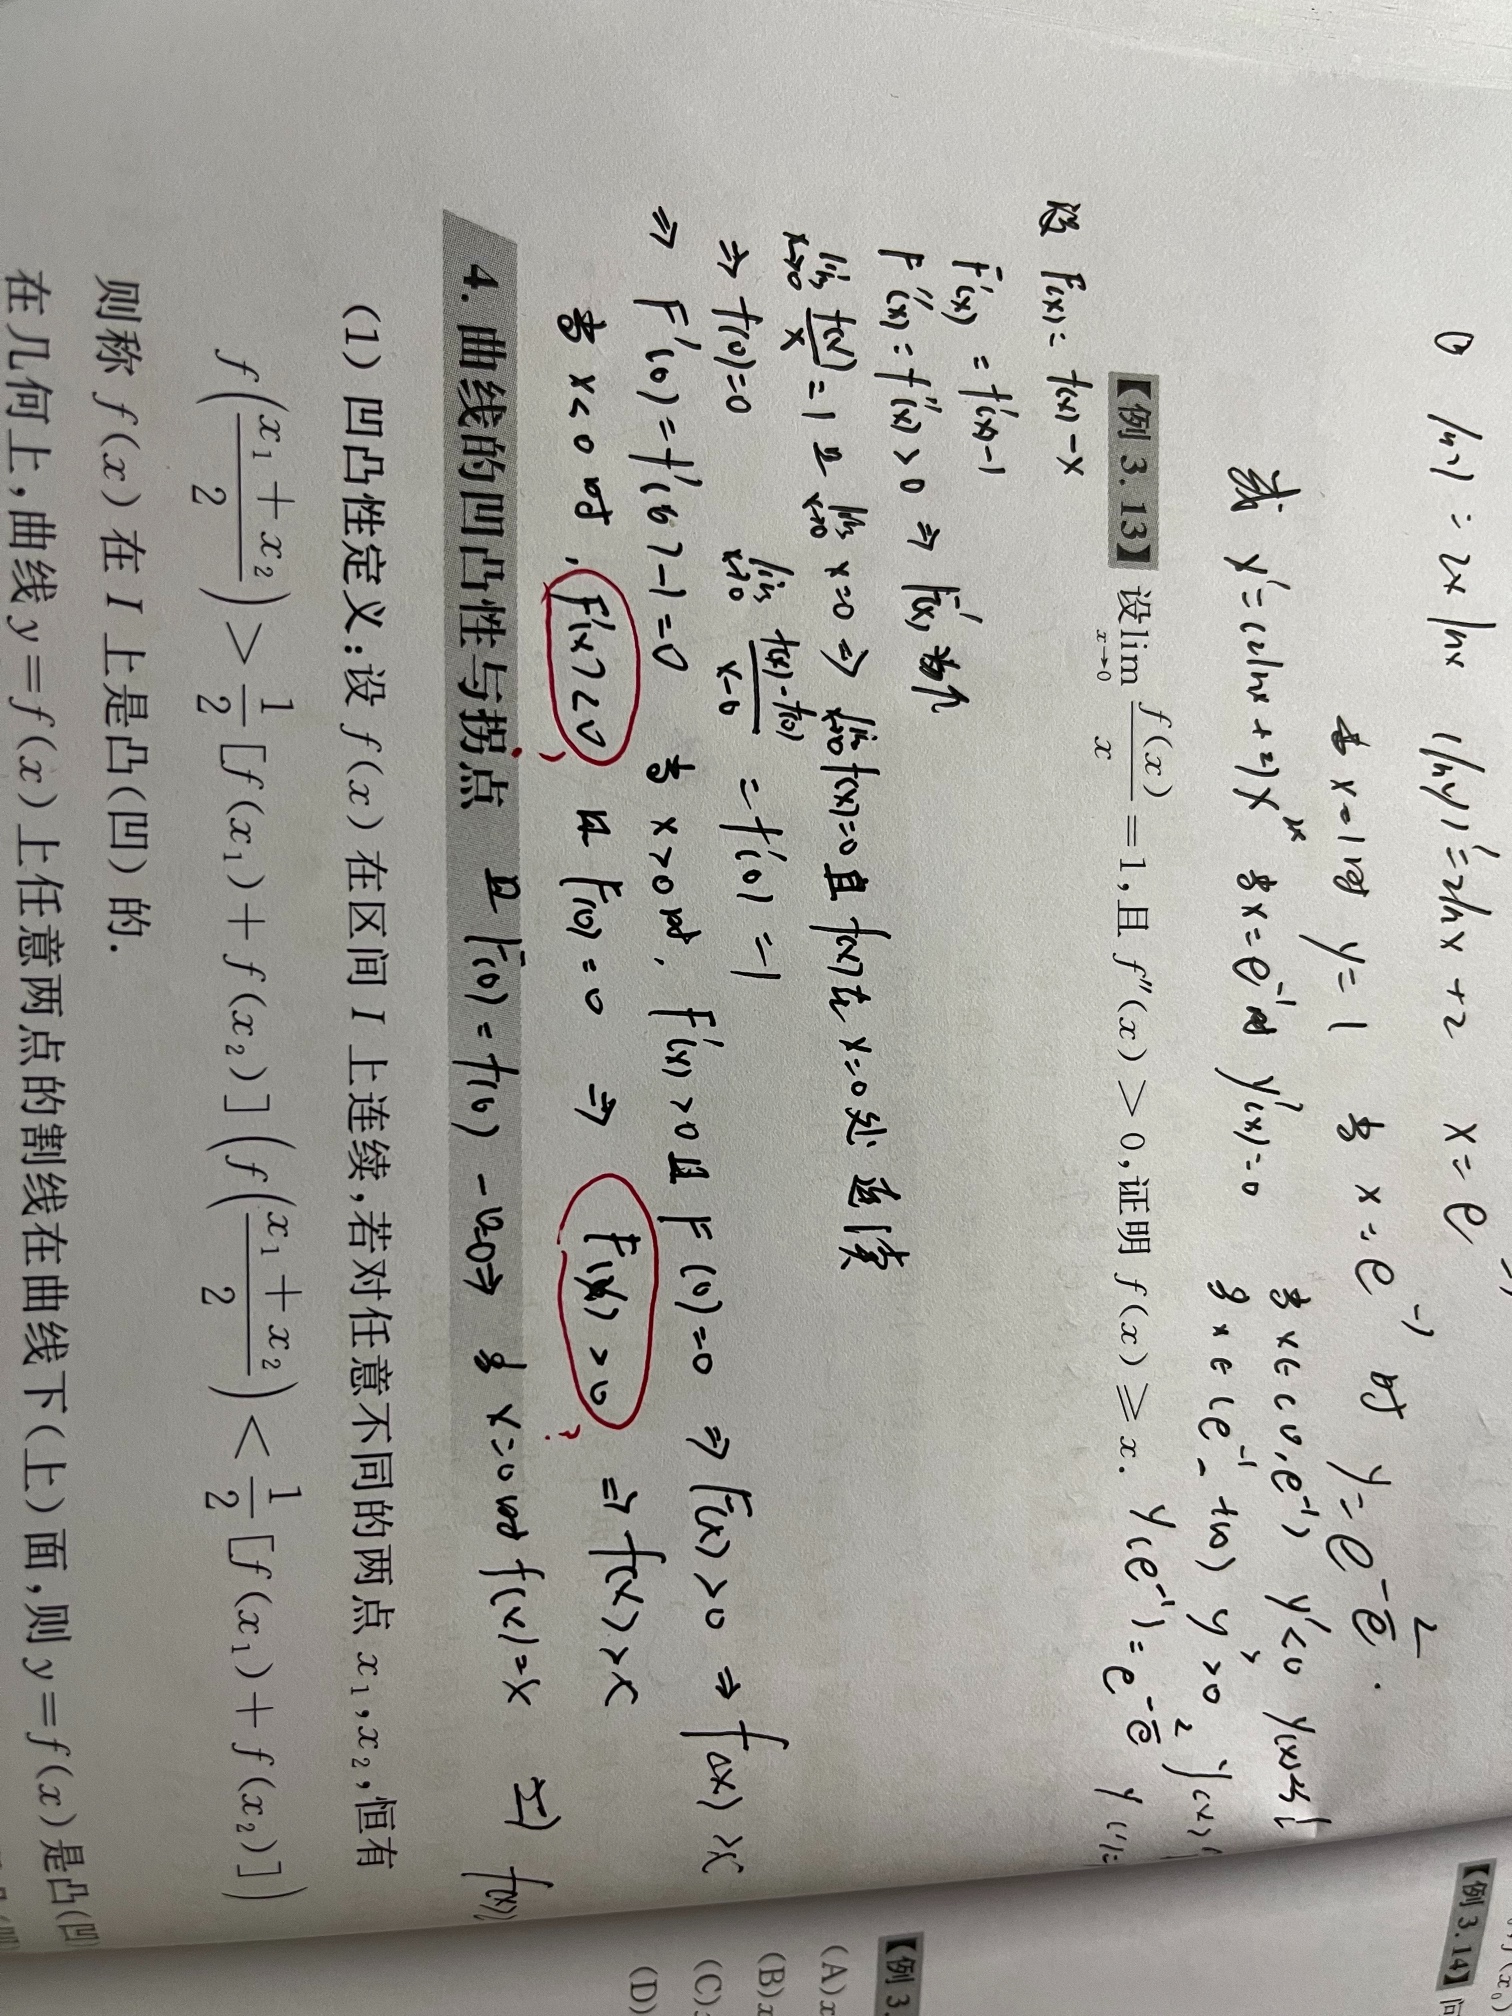 lny = 2x lnx (lny)' = 2lnx + 2 x = e
当 x=1时 y=1 当 x=e⁻¹ 时 y=e^{-2/e}.
或 y'=(2lnx+2)x^{2x} 当x=e⁻¹时 y'(x)=0
当 x∈(0,e⁻¹) y'<0
当 x∈(e⁻¹, +∞) y'>0
y(e⁻¹)=e^{-2/e}
【例 3.13】 设 lim_{x→0} f(x)/x = 1,且 f″(x)>0,证明 f(x)⩾x.
设 F(x)=f(x)-x
F'(x)=f'(x)-1
F''(x)=f''(x)>0 ⇒ F'(x)为个
lim_{x→0} f(x)/x = 1 且 lim_{x→0} x=0 ⇒ lim_{x→0} f(x)=0 且 f(x)在 x=0处 连续
⇒ f(0)=0 lim_{x→0} (f(x)-f(0))/(x-0) = f'(0)=1
⇒ F'(0)=f'(0)-1=0 当 x>0时, F'(x)>0 且 F(0)=0 ⇒ F(x)>0 ⇒ f(x)>x
当 x<0 时, F'(x)<0 且 F(0)=0 ⇒ F(x)>0 ⇒ f(x)>x
? ?
且 F(0)=f(0)-0=0⇒ 当 x=0时 f(x)=x
4. 曲线的凹凸性与拐点
(1) 凹凸性定义:设 f(x) 在区间 I 上连续,若对任意不同的两点 x₁,x₂,恒有
f((x₁+x₂)/2) > 1/2[f(x₁)+f(x₂)] (f((x₁+x₂)/2) < 1/2[f(x₁)+f(x₂)])
则称 f(x) 在 I 上是凸(凹)的.
在几何上,曲线 y=f(x) 上任意两点的割线在曲线下(上)面,则 y=f(x) 是凸(凹
【例 3.14】
【例 3.
(A) x
(B) x
(C)
(D)